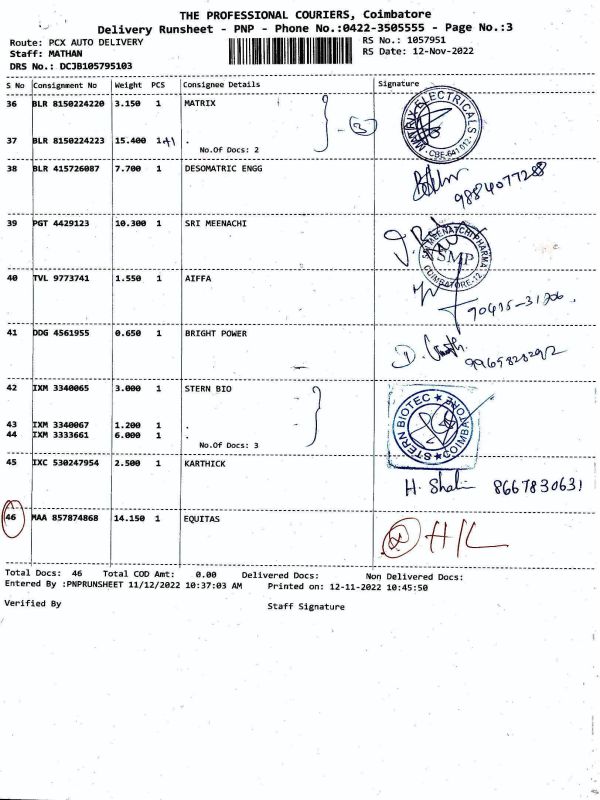 THE PROFESSIONAL COURIERS, Coimbatore
Delivery Runsheet - PNP - Phone No.:0422-3505555 - Page No.:3
Route: PCX AUTO DELIVERY
RS No.: 1057951
Staff: MATHAN
RS Date: 12-Nov-2022
DRS No.: DCJB105795103
S No Consignment No Weight PCS Consignee Details Signature
36 BLR 8150224220 3.150 1 MATRIX
MATRIX ELECTRICALS CBE-641 012
3
37 BLR 8150224223 15.400 1 .
No.Of Docs: 2
38 BLR 415726087 7.700 1 DESOMATRIC ENGG
9884077288
39 PGT 4429123 10.300 1 SRI MEENACHI
SRI MEENATCHI PHARMA SMP COIMBATORE-12
40 TVL 9773741 1.550 1 AIFFA
41 DDG 4561955 0.650 1 BRIGHT POWER
42 IXM 3340065 3.000 1 STERN BIO
STERN BIOTEC COIMBATORE
43 IXM 3340067 1.200 1 .
44 IXM 3333661 6.000 1 .
No.Of Docs: 3
45 IXC 530247954 2.500 1 KARTHICK
8667830631
46 MAA 857874868 14.150 1 EQUITAS
H/L
Total Docs: 46 Total COD Amt: 0.00 Delivered Docs: Non Delivered Docs:
Entered By :PNPRUNSHEET 11/12/2022 10:37:03 AM Printed on: 12-11-2022 10:45:50
Verified By Staff Signature